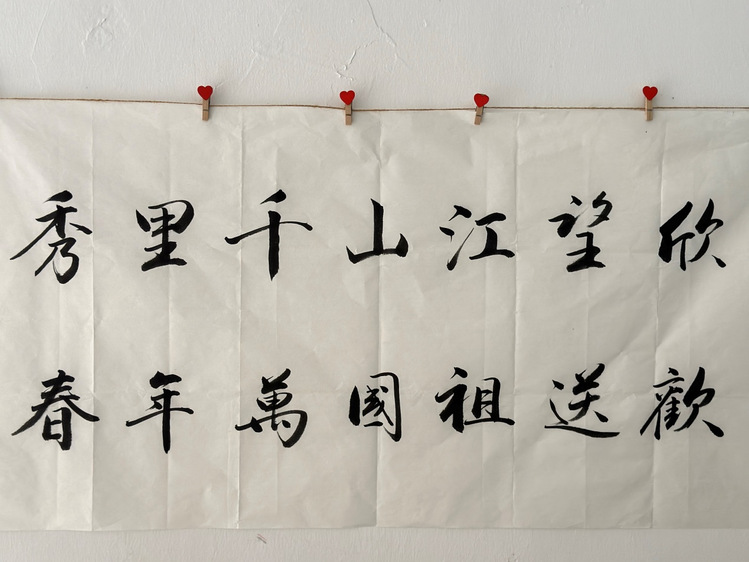 欣望江山千里秀
歡送祖國萬年春